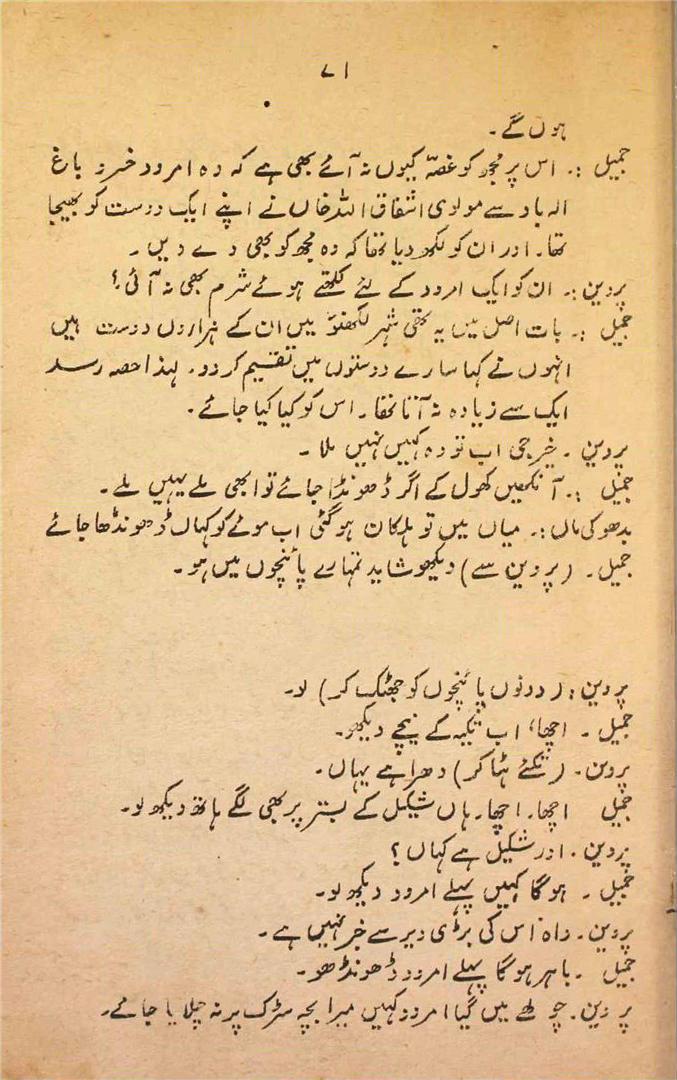 ۷۱
ہوں گے۔
جمیل :۔ اس پر مجھ کو غصّہ کیوں نہ آئے بھی ہے کہ وہ امرود خسرو باغ
الہ باد سے مولوی اشفاق اللہ خاں نے اپنے ایک دوست کو بھیجا
تھا۔ اور ان کو لکھ دیا تھا کہ وہ مجھ کو بھی دے دیں۔
پروین :۔ ان کو ایک امرود کے لئے لکھتے ہوئے شرم بھی نہ آئی؟
جمیل :۔ بات اصل میں یہ تھی شہر لکھنؤ میں ان کے ہزاروں دوست ہیں
انہوں نے کہا سارے دوستوں میں تقسیم کر دو۔ لہذا حصہ رسد
ایک سے زیادہ نہ آتا تھا۔ اس کو کیا کیا جائے۔
پروین ۔ خیر جی اب تو وہ کہیں نہیں ملا۔
جمیل :۔ آنکھیں کھول کے اگر ڈھونڈا جائے تو ابھی ملے یہیں ملے۔
بدھو کی ماں :۔ میاں میں تو ہلکان ہو گئی اب موئے کو کہاں ڈھونڈھا جائے
جمیل۔ (پروین سے) دیکھو شاید تمہارے پائنچوں میں ہو۔
پروین : (دونوں پائنچوں کو جھٹک کر) لو۔
جمیل ۔ اچھا، اب تکیہ کے نیچے دیکھو۔
پروین۔ (تکئے ہٹا کر) دھرا ہے یہاں۔
جمیل اچھا۔ اچھا۔ ہاں شکیل کے بستر پر بھی لگے ہاتھ دیکھ لو۔
پروین۔ اور شکیل ہے کہاں؟
جمیل ۔ ہو گا کہیں پہلے امرود دیکھ لو۔
پروین۔ واہ اس کی بڑی دیر سے خبر نہیں ہے۔
جمیل ۔ باہر ہو گا پہلے امرود ڈھونڈھو۔
پروین۔ چولھے میں گیا امرود کہیں میرا بچہ سڑک پر نہ چلا یا جائے۔